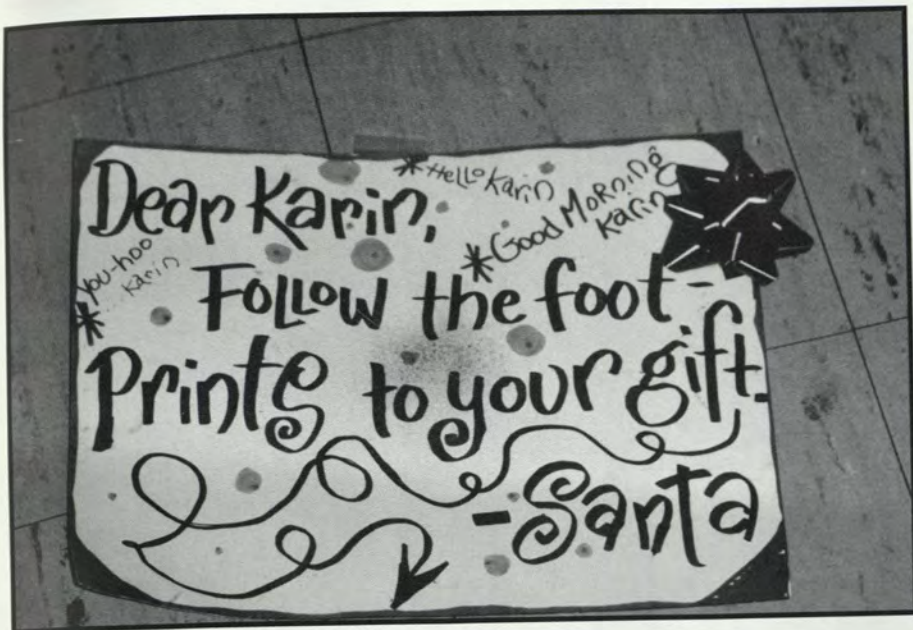 Dear Karin,
*Hello Karin
*Good Morning
Karin
*You-hoo
... Karin
Follow the foot-
Prints to your gift.
-Santa